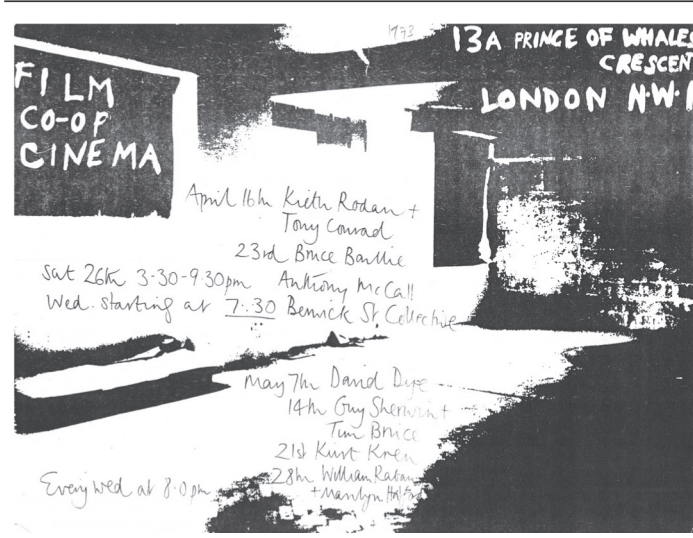 1973
13A PRINCE OF WHALES
CRESCENT
LONDON N.W.1
FILM
CO-OP
CINEMA
April 16th Kieth Rodan +
Tony Conrad
23rd Bruce Baillie
Sat 26th 3-30-9.30pm Anthony McCall
Wed. starting at 7.30 Berwick St Collective
May 7th David Dye
14th Guy Sherwin +
Tim Bruce
21st Kurt Kren
28th William Raban
+ Marilyn
Every wed at 8.0pm